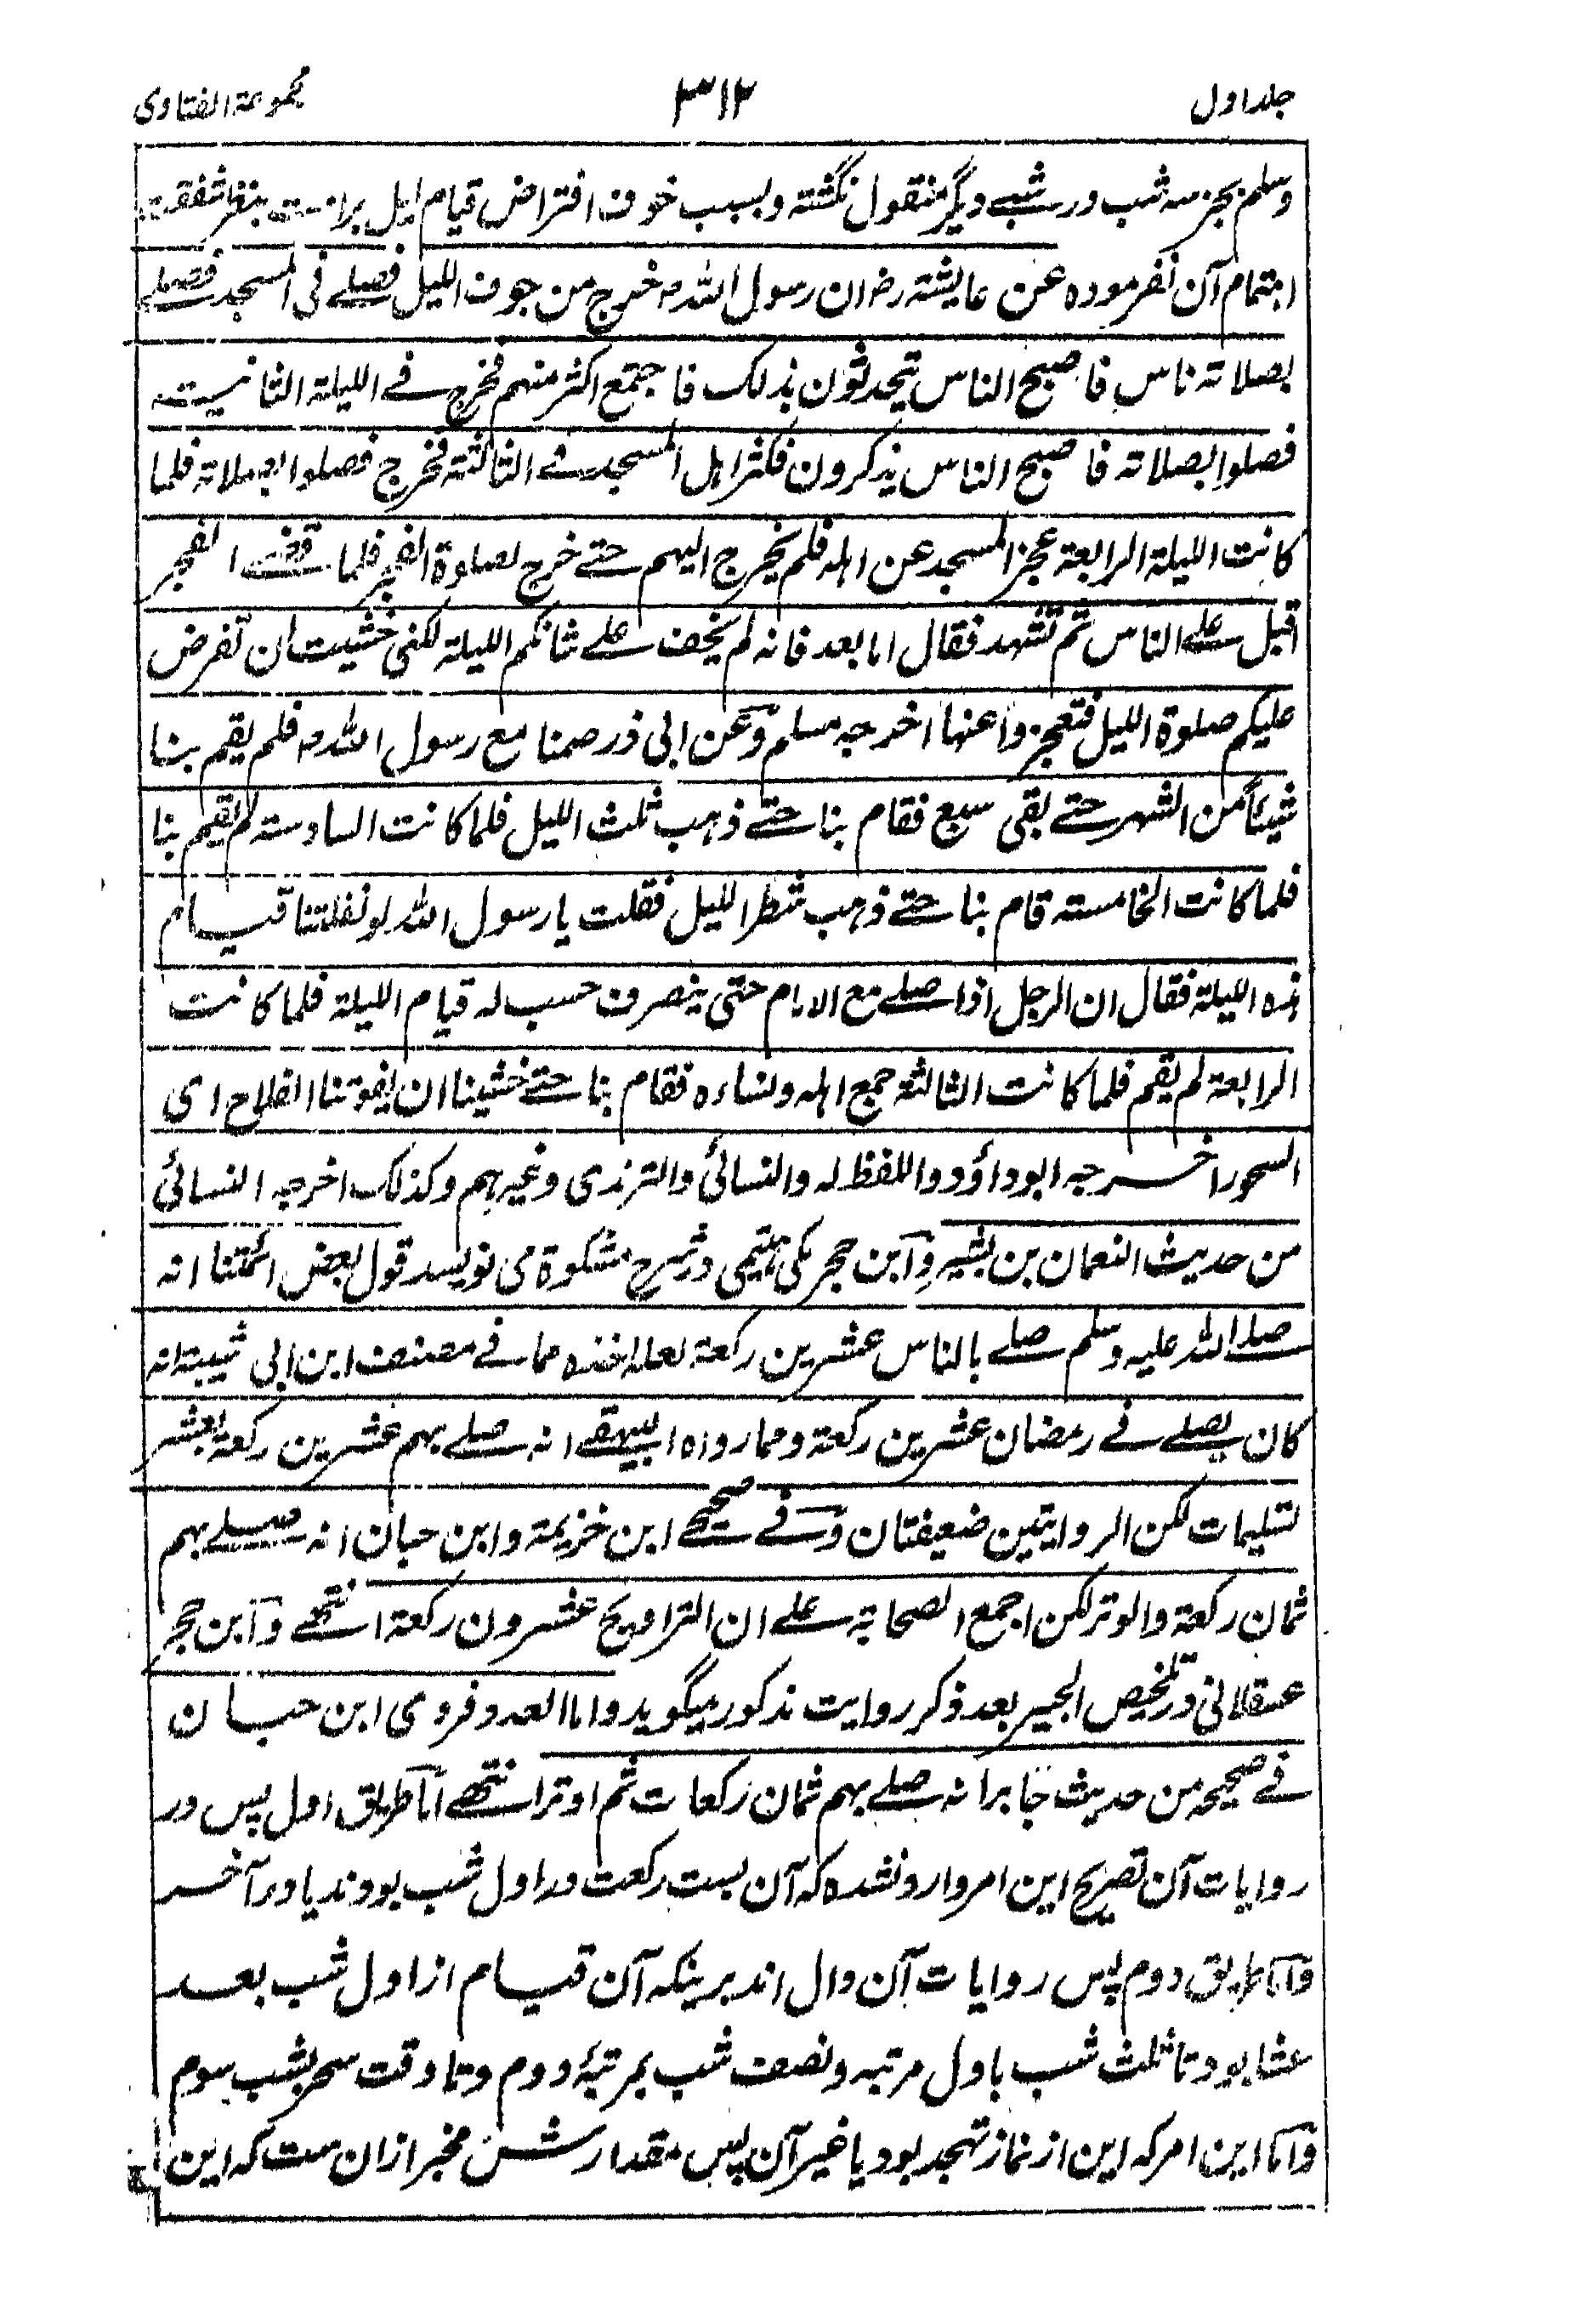 جلد اول
۳۱۲
مجموعة الفتاوی
وسلم بجز سه شب در شبے دیگر منقول نگشته و بسبب خوف افتراض قیام لیل بر امت بنظر شفقت
اہتمام آن نفرموده عن عایشة رض ان رسول اللہ ص خرج من جوف اللیل فصلے فی المسجد فصلے
بصلاته ناس فاصبح الناس یتحدثون بذلک فاجتمع اکثر منهم فخرج فے اللیلة الثانیة
فصلوا بصلاته فاصبح الناس یذکرون فکثر اہل المسجد فے الثالثة فخرج فصلوا بصلاته فلما
کانت اللیلة الرابعة عجز المسجد عن اہلہ فلم یخرج الیهم حتے خرج لصلوة الفجر فلما قضے الفجر
اقبل علے الناس ثم تشہد فقال اما بعد فانه لم یخف علے شانکم اللیلة لکنی خشیت ان تفرض
علیکم صلوة اللیل فتعجزوا عنہا اخرجہ مسلم وعن ابی ذر صمنا مع رسول اللہ ص فلم یقم بنا
شیئا من الشہر حتے بقی سبع فقام بنا حتے ذہب ثلث اللیل فلما کانت السادسة لم یقم بنا
فلما کانت الخامسة قام بنا حتے ذہب شطر اللیل فقلت یا رسول اللہ لو نفلتنا قیام
ہذه اللیلة فقال ان الرجل اذا صلے مع الامام حتی ینصرف حسب لہ قیام اللیلة فلما کانت
الرابعة لم یقم فلما کانت الثالثة جمع اہلہ ونساءه فقام بنا حتے خشینا ان یفوتنا الفلاح ای
السحور اخرجہ ابو داؤد واللفظ لہ والنسائی والترمذی وغیرہم وکذلک اخرجہ النسائی
من حدیث النعمان بن بشیر وابن حجر مکی ہیتمی در شرح مشکوة می نویسد قول بعض ائمتنا انہ
صلے اللہ علیہ وسلم صلے بالناس عشرین رکعة لعلہ اخذہ مما فے مصنف ابن ابی شیبة انہ
کان یصلے فے رمضان عشرین رکعة ومما رواہ البیہقے انہ صلے بہم عشرین رکعة بعشر
تسلیمات لکن الروایتین ضعیفتان وفے صحیحے ابن خزیمة وابن حبان انہ صلے بہم
ثمان رکعة والوتر لکن اجمع الصحابة علے ان التراویح عشرون رکعة انتہے وابن حجر
عسقلانی در تلخیص الحبیر بعد ذکر روایت مذکور میگوید واما العدد فروی ابن حبان
فے صحیحہ من حدیث جابر انہ صلے بہم ثمان رکعات ثم اوتر انتہے اما طریق اول پس در
روایات آن تصریح این امر وارد نشده کہ آن بست رکعت در اول شب بودند یا در آخر
واما طریق دوم پس روایات آن دال اند برینکہ آن قیام از اول شب بعد
عشا بود تا ثلث شب باول مرتبہ ونصف شب بمرتبۂ دوم وتا وقت سحر بشب سوم
واما این امر کہ این از نماز تہجد بود یا غیر آن پس مقدارش مخبر ازان ست کہ این